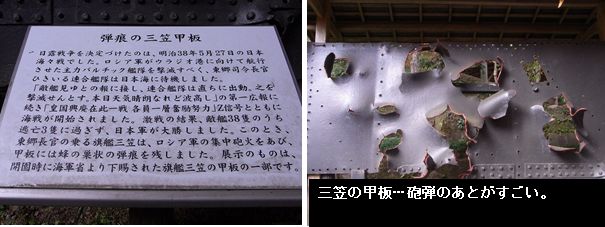 弾痕の三笠甲板
日露戦争を決定づけたのは、明治38年5月27日の日本
海々戦でした。ロシア軍がウラジオ港に向けて航行
させた主力バルチック艦隊を撃滅すべく、東郷司令長官
ひきいる連合艦隊は日本海に待機しました。
「敵艦見ゆとの報に接し、連合艦隊は直ちに出動、之を
撃滅せんとす。本日天気晴朗なれど波高し」の第一広報に
続き「皇国興廃在此一戦各員一層奮励努力」Z信号とともに
海戦が開始されました。激戦の結果、敵艦38隻のうち
逃亡3隻に過ぎず、日本軍が大勝しました。このとき、
東郷長官の乗る旗艦三笠は、ロシア軍の集中砲火をあび、
甲板には蜂の巣状の弾痕を残しました。展示のものは、
開園時に海軍省より下賜された旗艦三笠の甲板の一部です。
三笠の甲板…砲弾のあとがすごい。